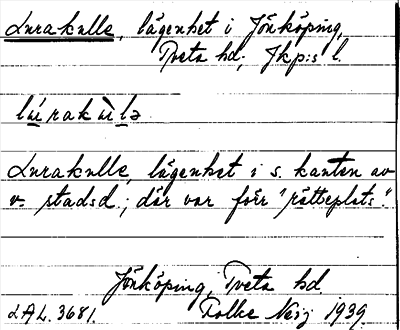 Lurakulle, lägenhet i Jönköping,
Tveta hd, Jkp:s l.
lúrakùlə
Lurakulle, lägenhet i s. kanten av
v. stadsd.; där var förr "rätteplats."
Jönköping, Tveta hd.
LAL. 3681. Folke Neij 1939